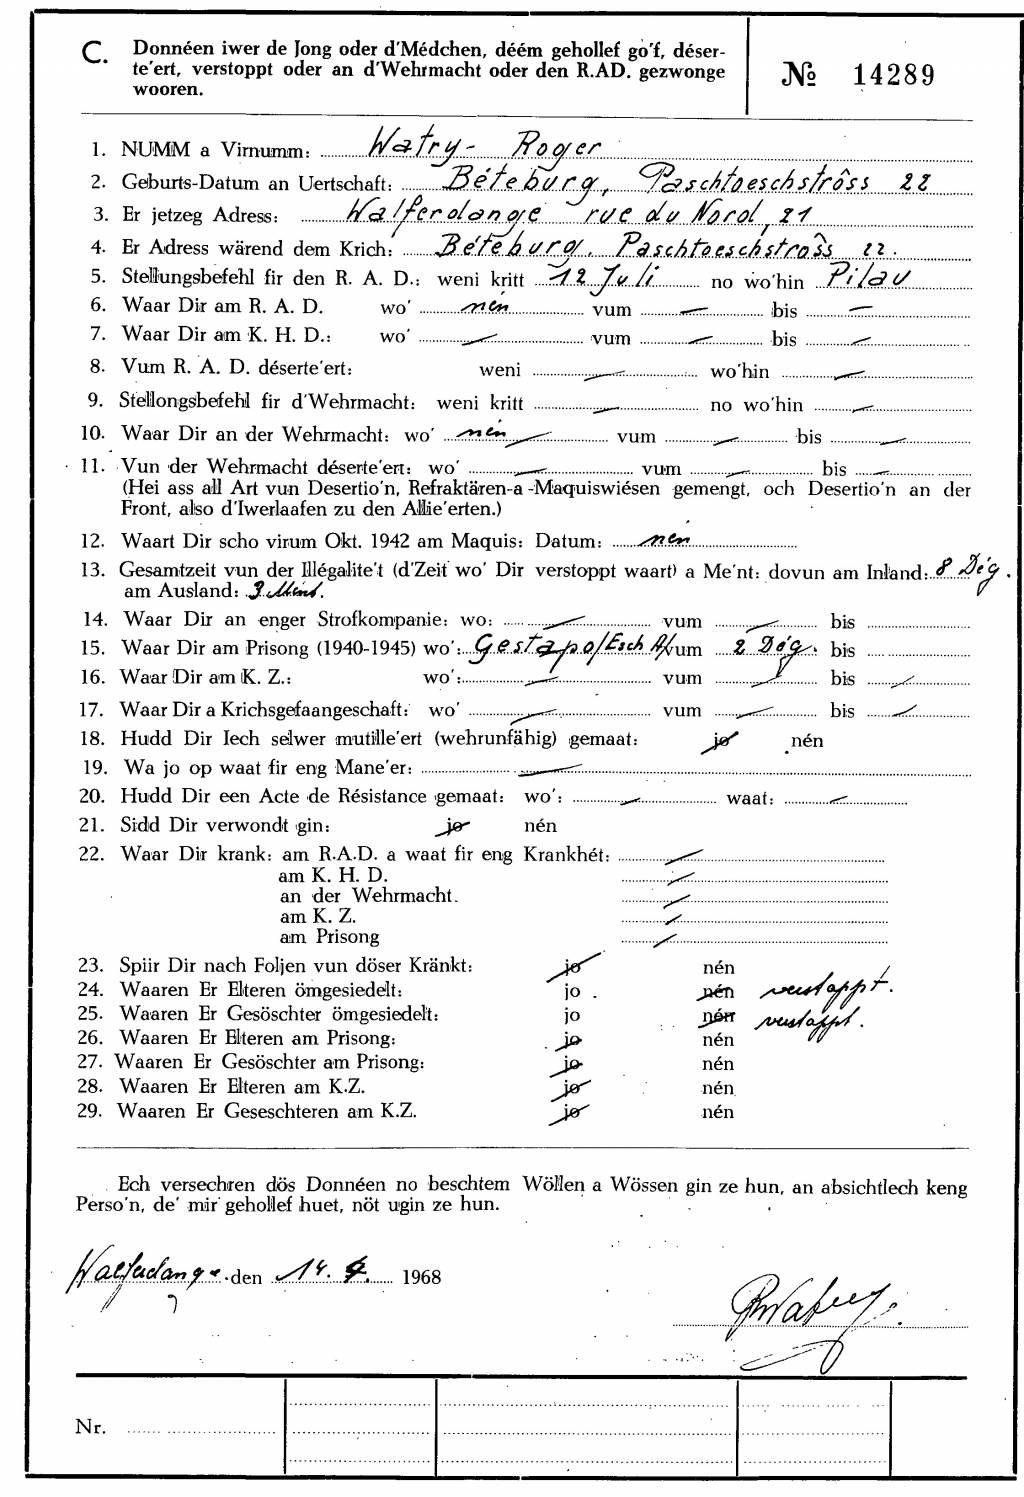 C. Donnéen iwer de Jong oder d'Médchen, déém gehollef go'f, déser-
te'ert, verstoppt oder an d'Wehrmacht oder den R.AD. gezwonge
wooren.
№ 14289
1. NUMM a Virnumm: Watry- Roger
2. Geburts-Datum an Uertschaft: Béteburg, Paschtoeschströss 22
3. Er jetzeg Adress: Walferdange rue du Nord, 21
4. Er Adress wärend dem Krich: Béteburg. Paschtoeschströss 22.
5. Stellungsbefehl fir den R. A. D.: weni kritt 12 Juli no wo'hin Pilau
6. Waar Dir am R. A. D. wo' nén vum — bis —
7. Waar Dir am K. H. D.: wo' — vum — bis —
8. Vum R. A. D. déserte'ert: weni — wo'hin —
9. Stellongsbefehl fir d'Wehrmacht: weni kritt — no wo'hin —
10. Waar Dir an der Wehrmacht: wo' nén — vum — bis —
11. Vun der Wehrmacht déserte'ert: wo' — vum — bis —
(Hei ass all Art vun Desertio'n, Refraktären-a -Maquiswiésen gemengt, och Desertio'n an der
Front, also d'Iwerlaafen zu den Allie'erten.)
12. Waart Dir scho virum Okt. 1942 am Maquis: Datum: nén
13. Gesamtzeit vun der Illégalite't (d'Zeit wo' Dir verstoppt waart) a Me'nt: dovun am Inland: 8 Dég.
am Ausland: 3 Ment.
14. Waar Dir an enger Strofkompanie: wo: — vum — bis
15. Waar Dir am Prisong (1940-1945) wo': Gestapo/Esch A/ vum 2 Dég. bis
16. Waar Dir am K. Z.: wo': — vum — bis —
17. Waar Dir a Krichsgefaangeschaft: wo' — vum — bis —
18. Hudd Dir Iech selwer mutille'ert (wehrunfähig) gemaat: jo nén
19. Wa jo op waat fir eng Mane'er: —
20. Hudd Dir een Acte de Résistance gemaat: wo': — waat: —
21. Sidd Dir verwondt gin: jo nén
22. Waar Dir krank: am R.A.D. a waat fir eng Krankhét: —
am K. H. D. —
an der Wehrmacht. —
am K. Z. —
am Prisong —
23. Spiir Dir nach Foljen vun döser Kränkt: jo nén
24. Waaren Er Elteren ömgesiedelt: jo nén verstappt.
25. Waaren Er Gesöschter ömgesiedelt: jo nén verstappt.
26. Waaren Er Elteren am Prisong: jo nén
27. Waaren Er Gesöschter am Prisong: jo nén
28. Waaren Er Elteren am K.Z. jo nén
29. Waaren Er Geseschteren am K.Z. jo nén
Ech versechren dös Donnéen no beschtem Wöllen a Wössen gin ze hun, an absichtlech keng
Perso'n, de' mir gehollef huet, nöt ugin ze hun.
Walferdange den 14. 9. 1968
RWatry.
Nr.